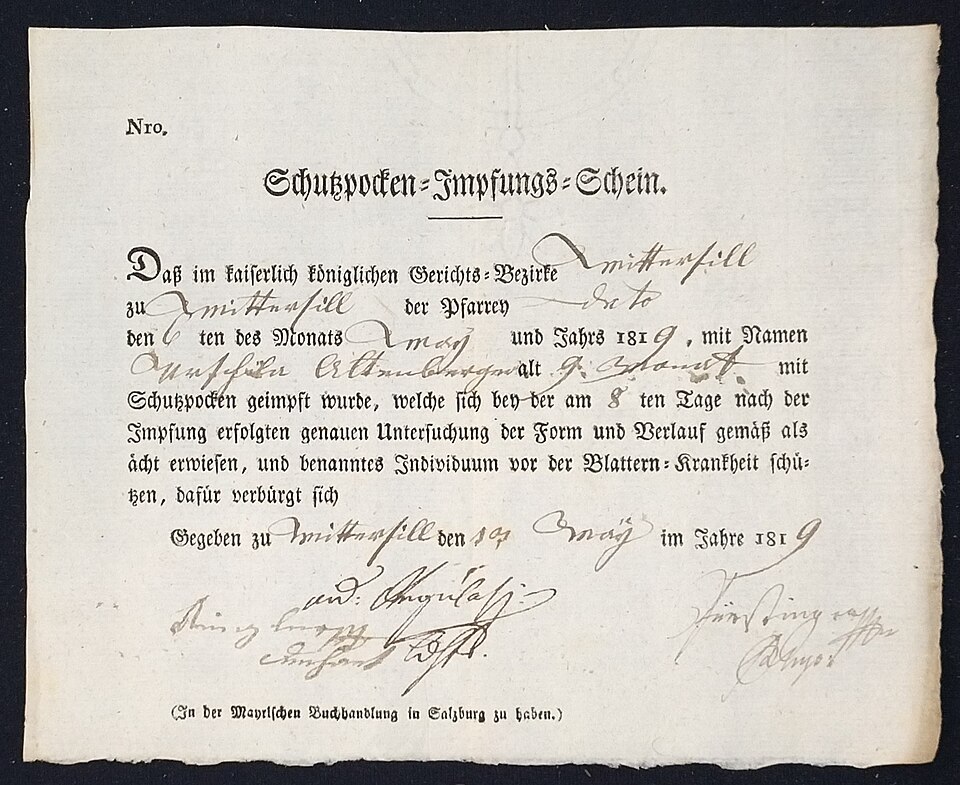 Nro.
Schutzpocken-Impfungs-Schein.
Daß im kaiserlich königlichen Gerichts-Bezirke Mittersill
zu Mittersill der Pfarrey dato
den 6 ten des Monats May und Jahrs 1819, mit Namen
Urschula Altenberger alt 9. Monat mit
Schutzpocken geimpft wurde, welche sich bey der am 8 ten Tage nach der
Impfung erfolgten genauen Untersuchung der Form und Verlauf gemäß als
ächt erwiesen, und benanntes Individuum vor der Blattern-Krankheit schü-
tzen, dafür verbürgt sich
Gegeben zu Mittersill den May im Jahre 1819
(In der Mayrischen Buchhandlung in Salzburg zu haben.)